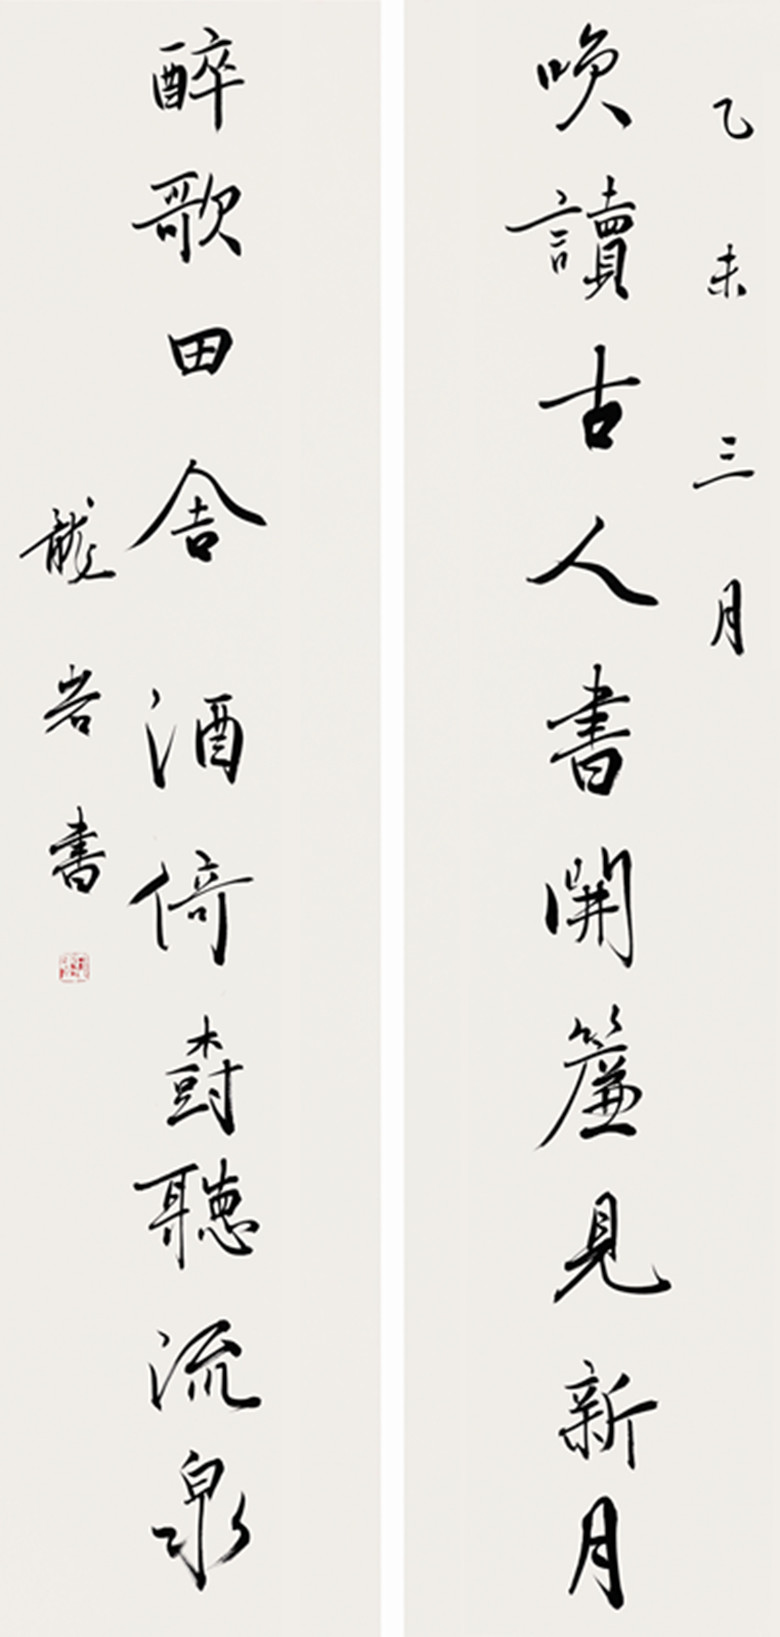 乙未三月
喚讀古人書開簾見新月
醉歌田舍酒倚樹聽流泉
龍岩書